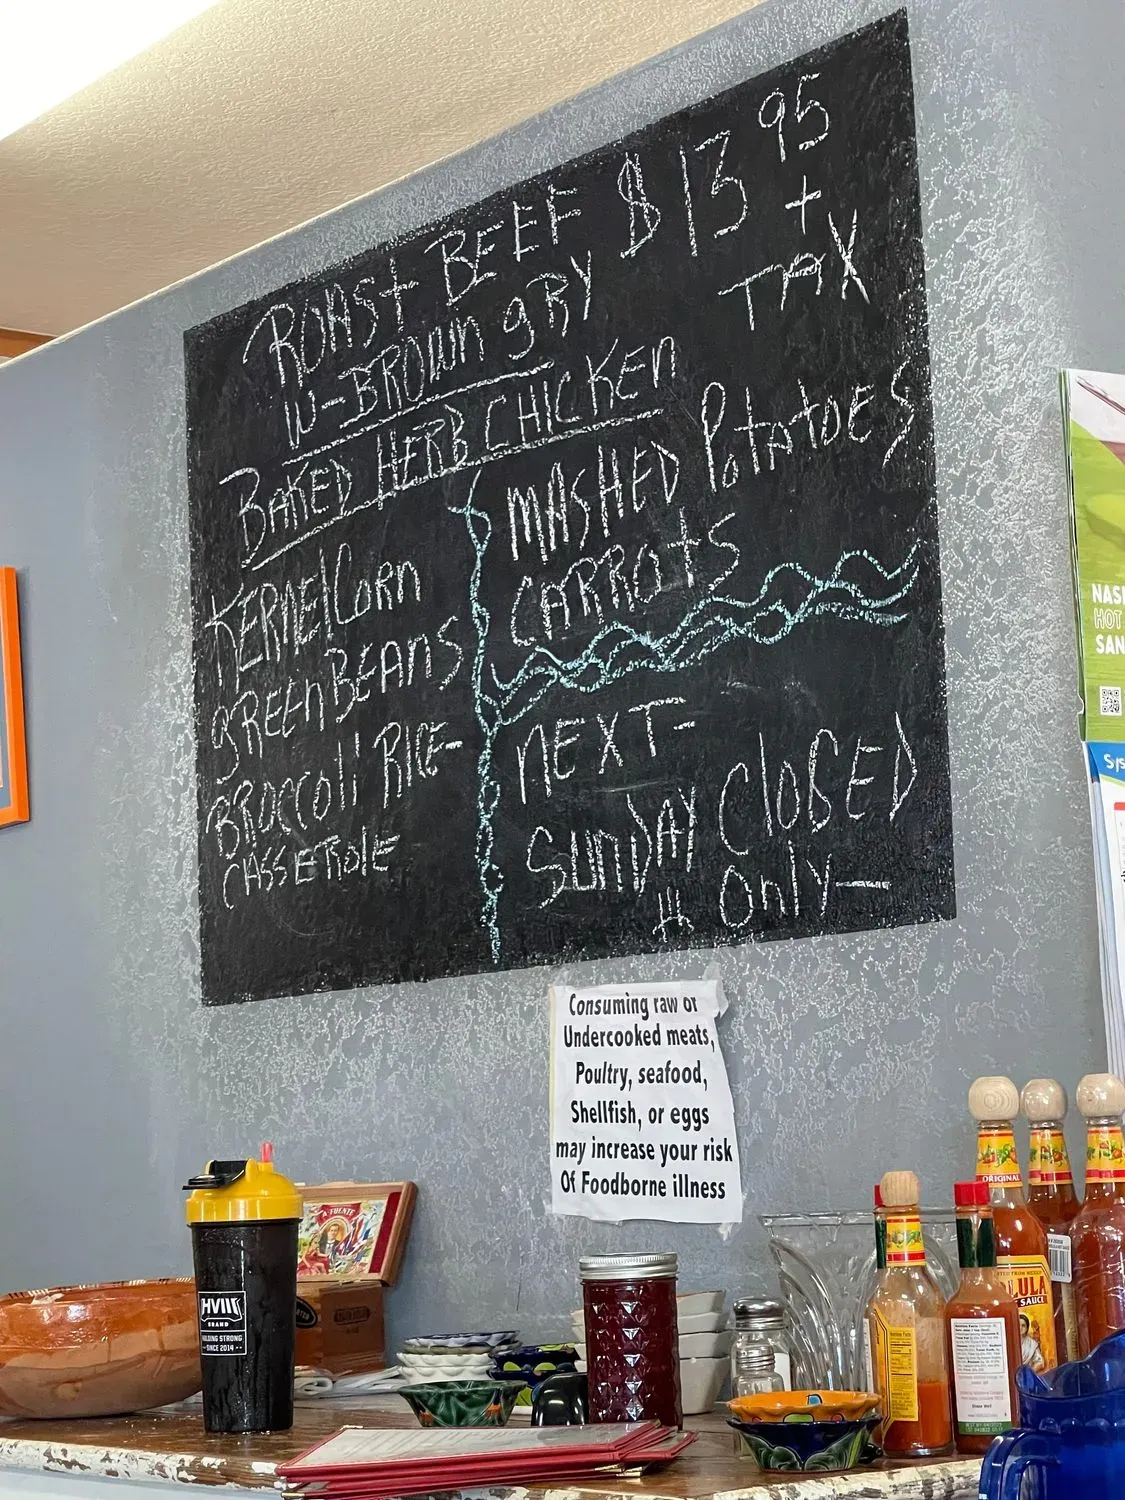 ROAST BEEF $13 95
W-BROWN gRY
+
TAX
BAKED HERB CHICKEN
KERNEl CORN
gREEN BEANS
BROCCOli RICE-
CASSEROlE
MASHED POtAtOES
CARROtS
NEXT-
SUNDAY ClOSED
Only—
Consuming raw or
Undercooked meats,
Poultry, seafood,
Shellfish, or eggs
may increase your risk
Of Foodborne illness
A FUENTE
HVIII
BRAND
BUILDING STRONG
SINCE 2014
ORIGINAL
SAUCE
NAS
HOT
SAN
Sys